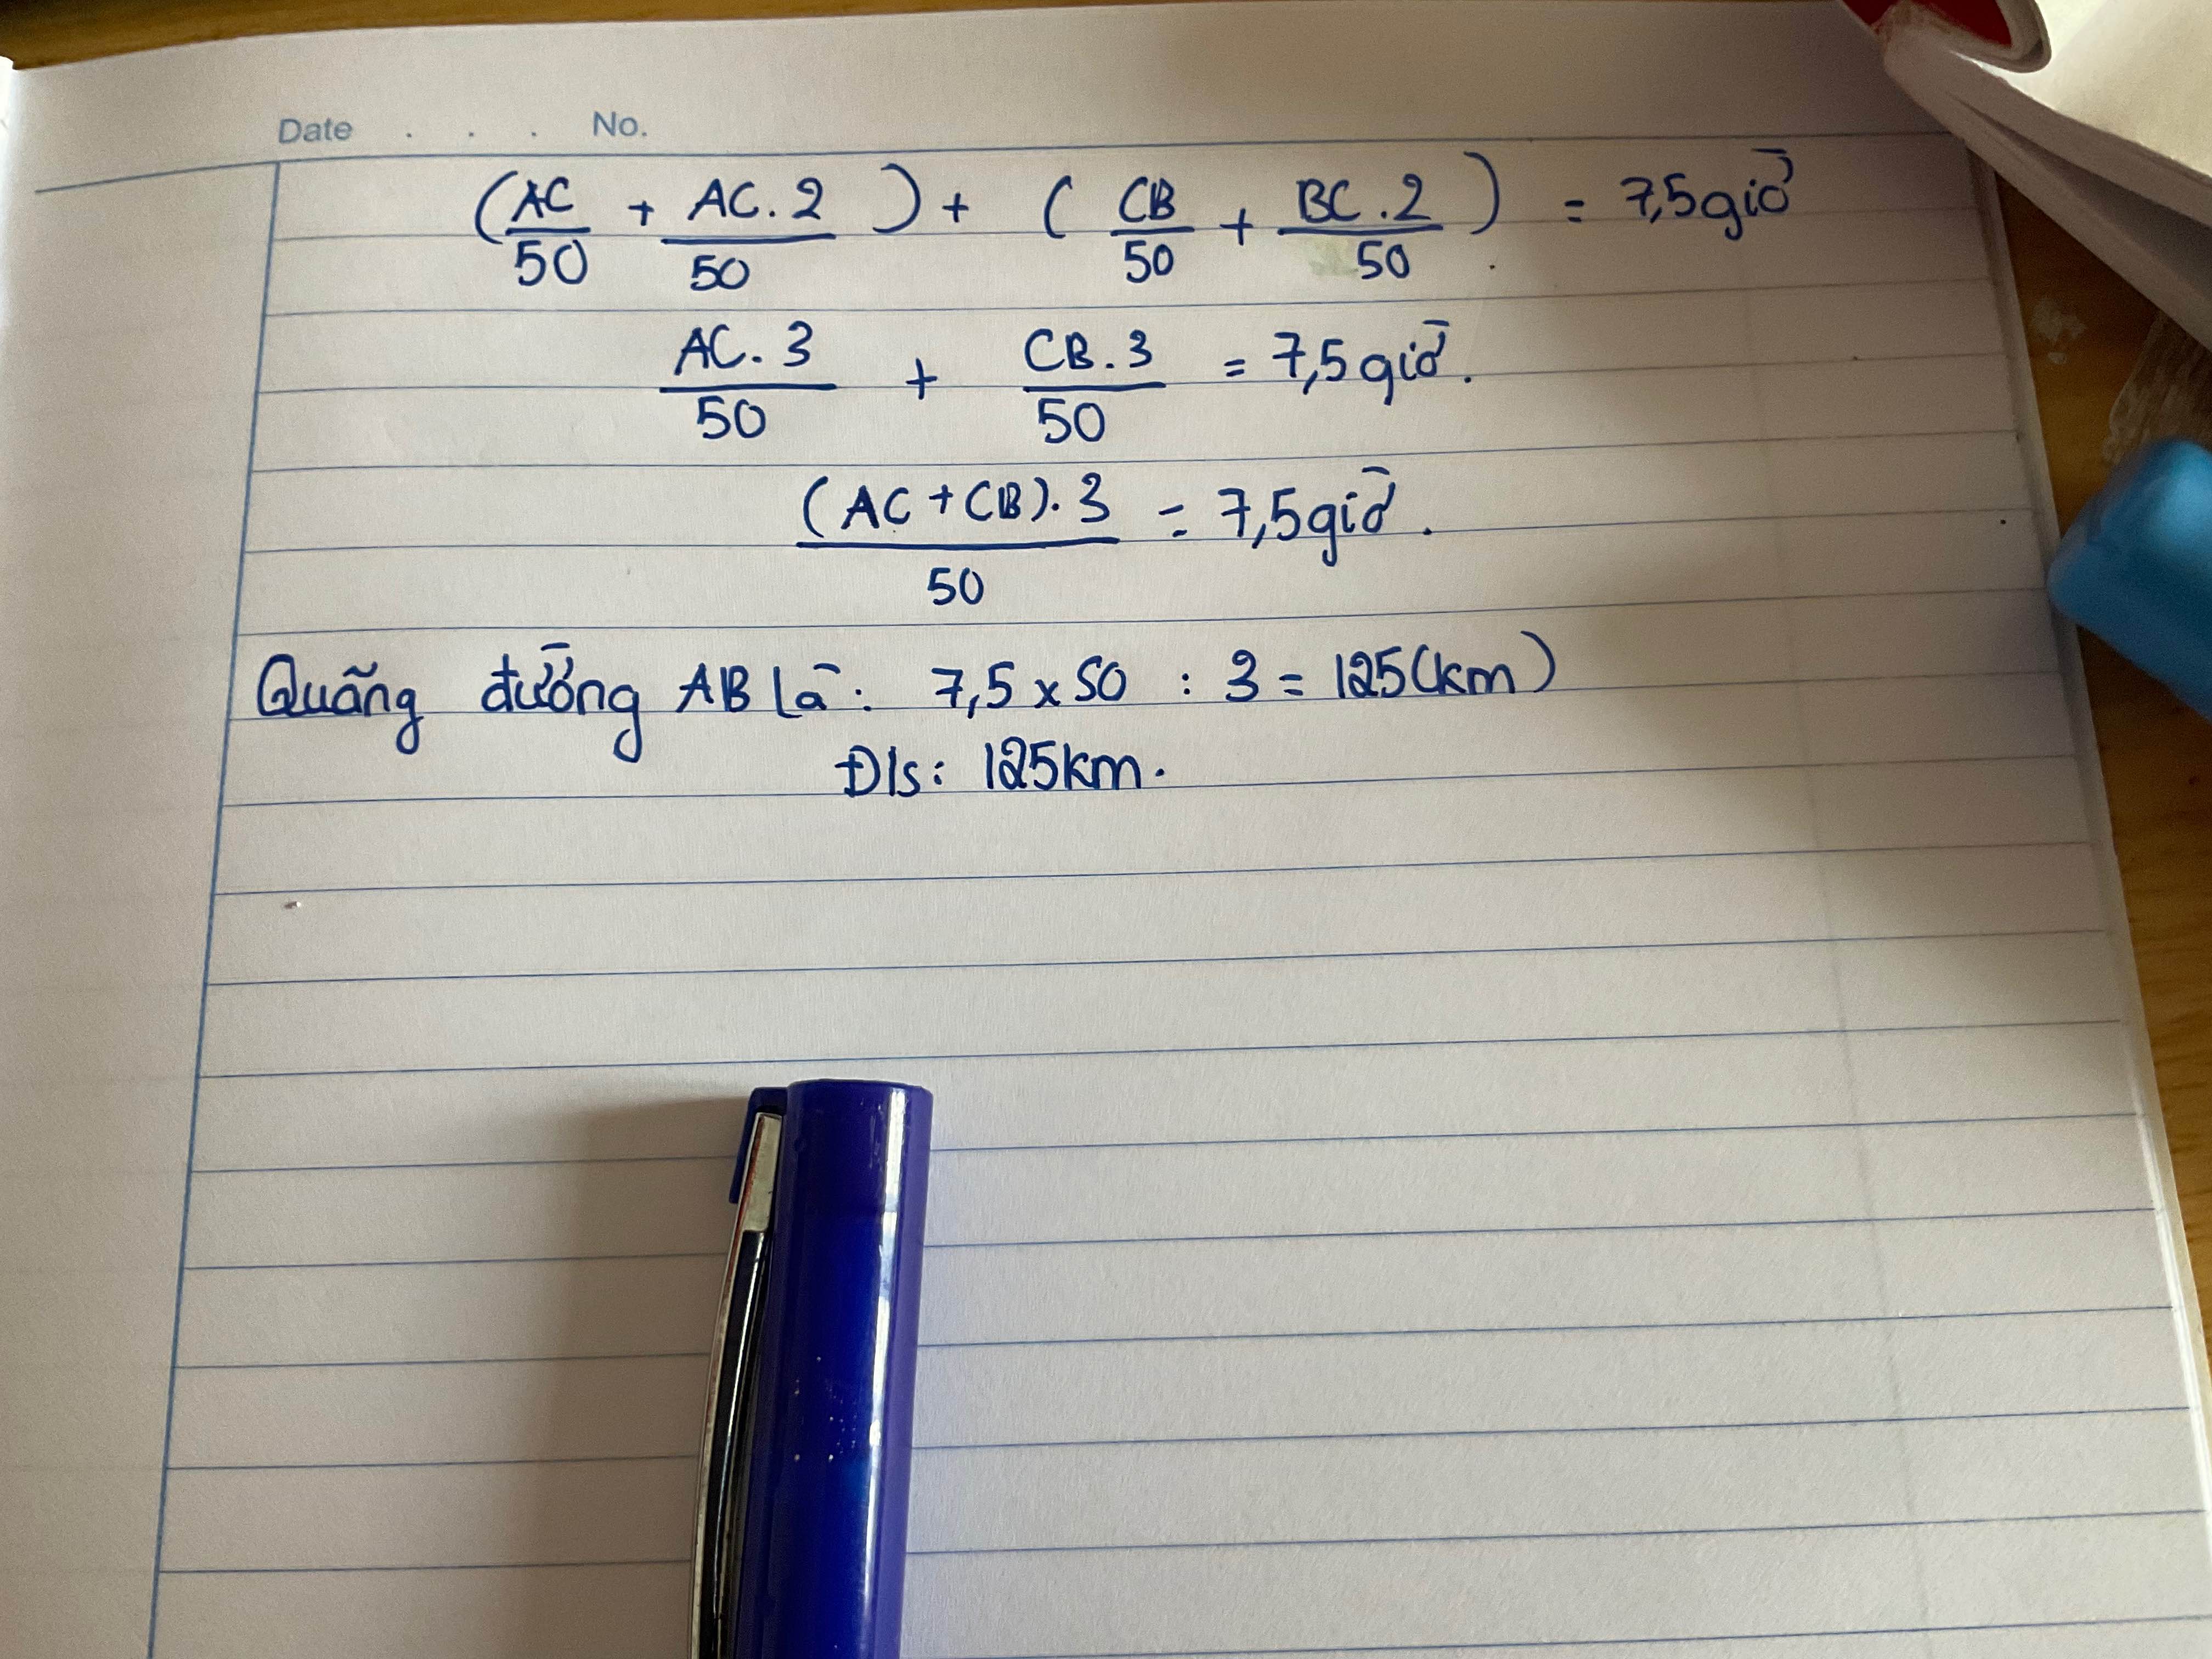 Date . . . No.
(AC/50 + AC.2/50) + (CB/50 + BC.2/50) = 7,5 giờ
AC.3/50 + CB.3/50 = 7,5 giờ.
(AC + CB).3/50 = 7,5 giờ.
Quãng đường AB là: 7,5 x 50 : 3 = 125 (km)
Đ/s: 125km.